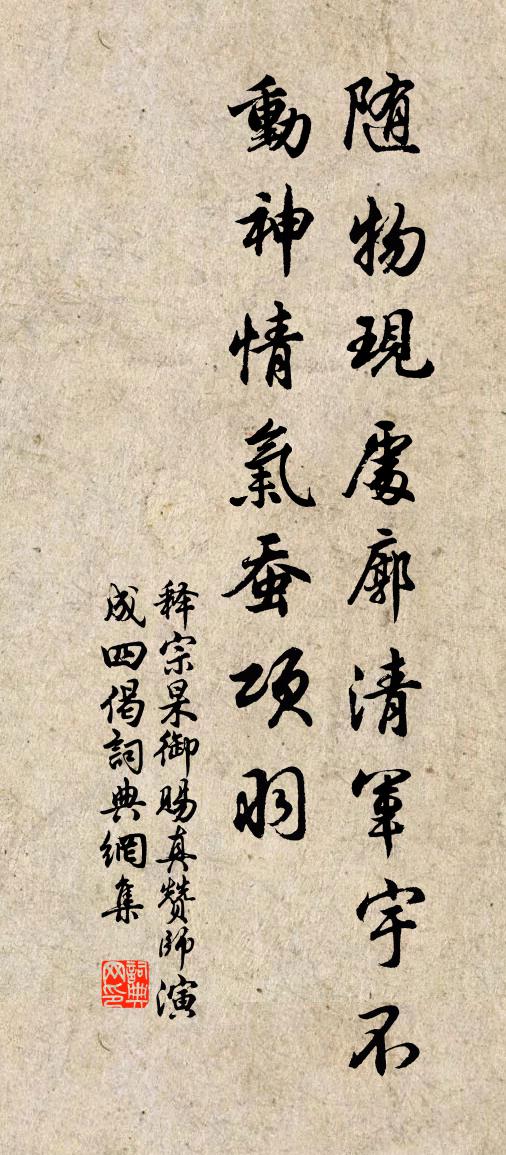 随物現處廓清軍宇不
動神情氣蚕项羽
释宗杲御賜真贊師演
成四偈詞典網集
詞典网印